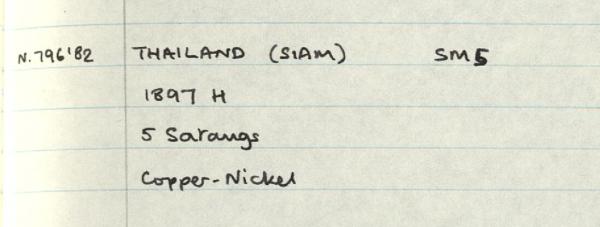 N.796'82 THAILAND (SIAM) SM5
1897 H
5 Satangs
Copper-Nickel